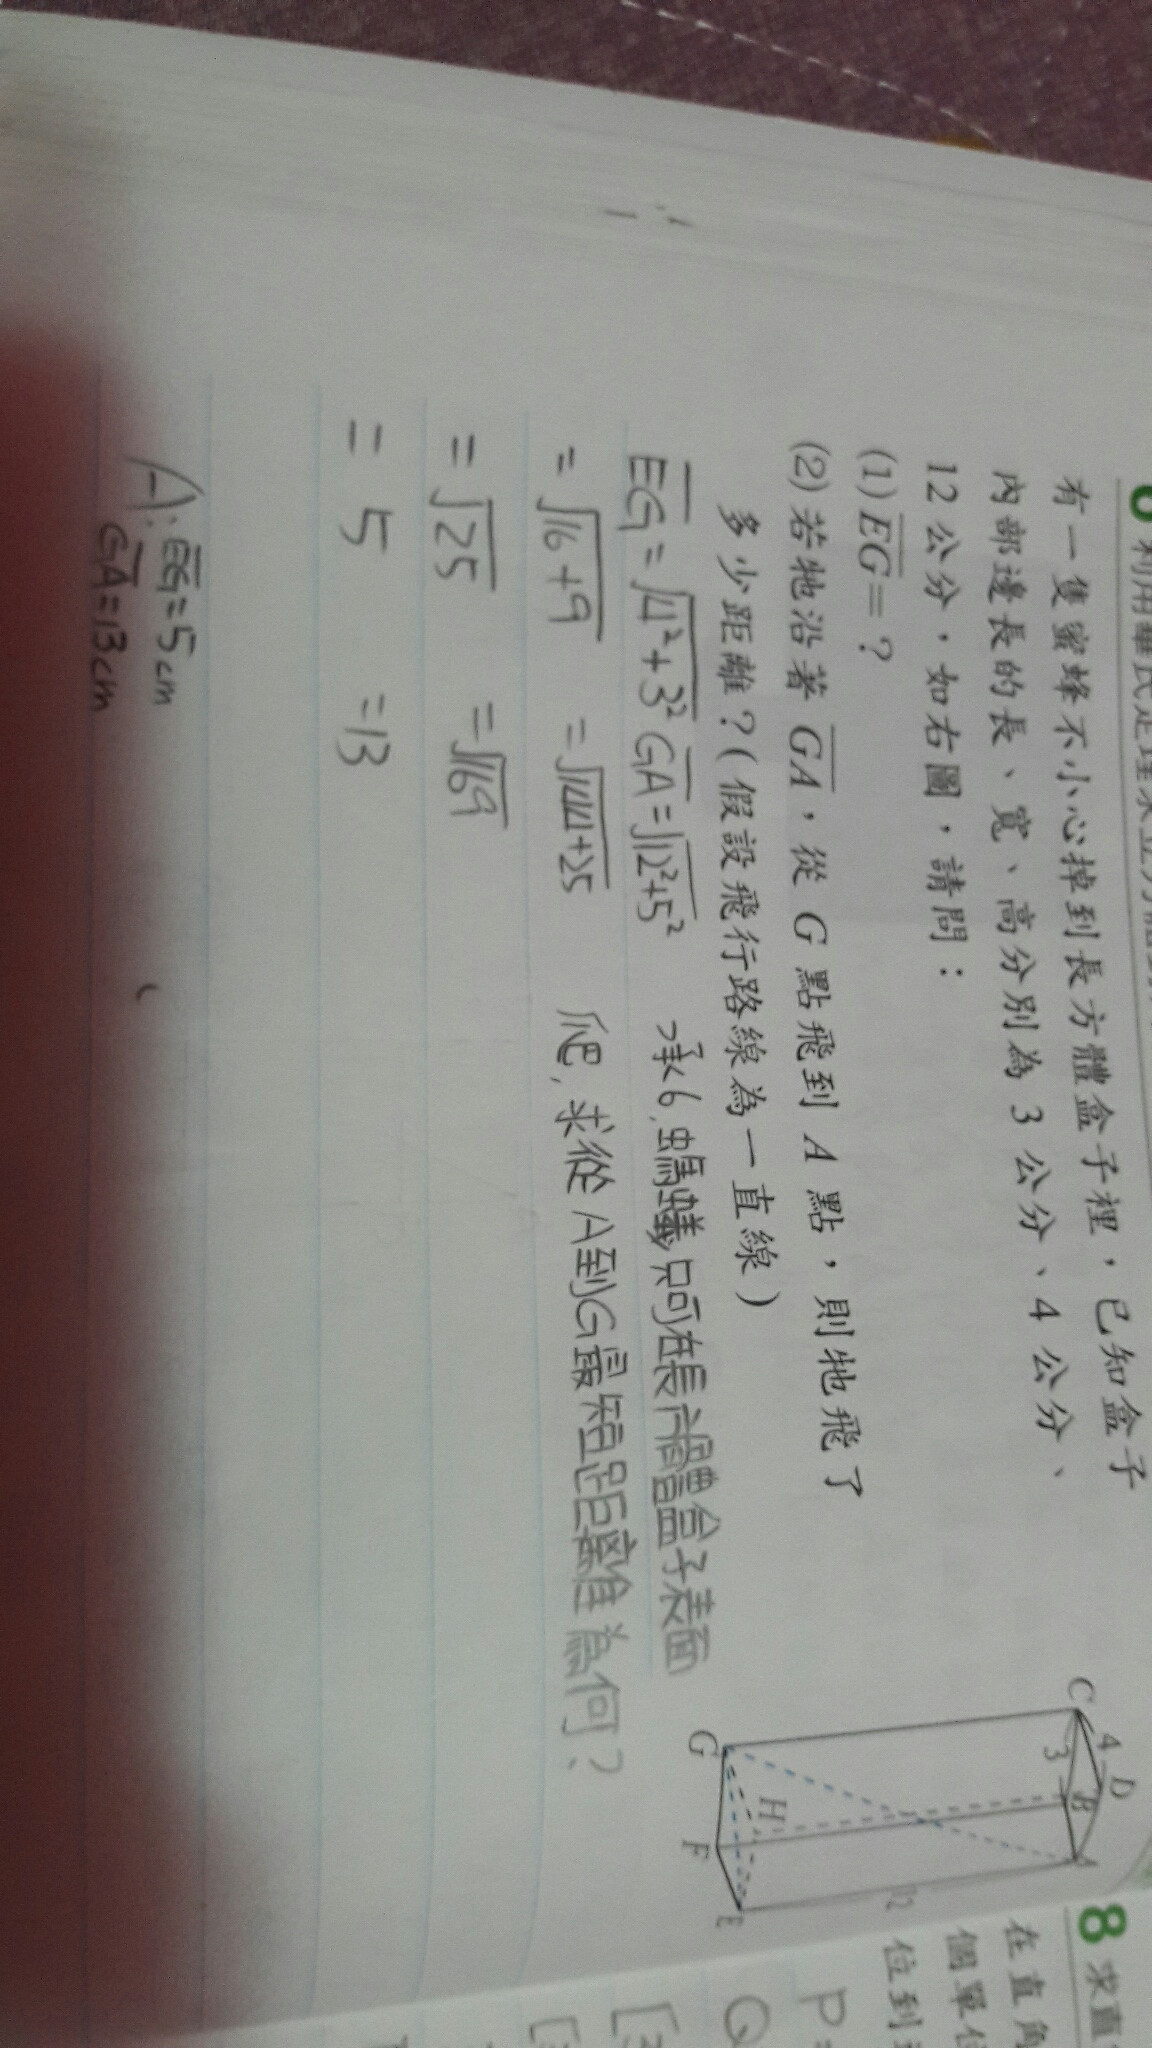 6 利用畢氏定理求立方體
有一隻蜜蜂不小心掉到長方體盒子裡，已知盒子
內部邊長的長、寬、高分別為 3 公分、4 公分、
12 公分，如右圖，請問：
(1) EG＝？
(2) 若牠沿著 GA，從 G 點飛到 A 點，則牠飛了
多少距離？(假設飛行路線為一直線)
C 4 D
3 B A
12
G H F E
EG=√4²+3² GA=√12²+5²
=√16+9 =√144+25
=√25 =√169
=5 =13
A: EG=5cm
GA=13cm
承6,螞蟻只可在長方體盒子表面
爬,求從A到G最短距離為何?
8 求直
在直角
個單位
位到
P=
Q